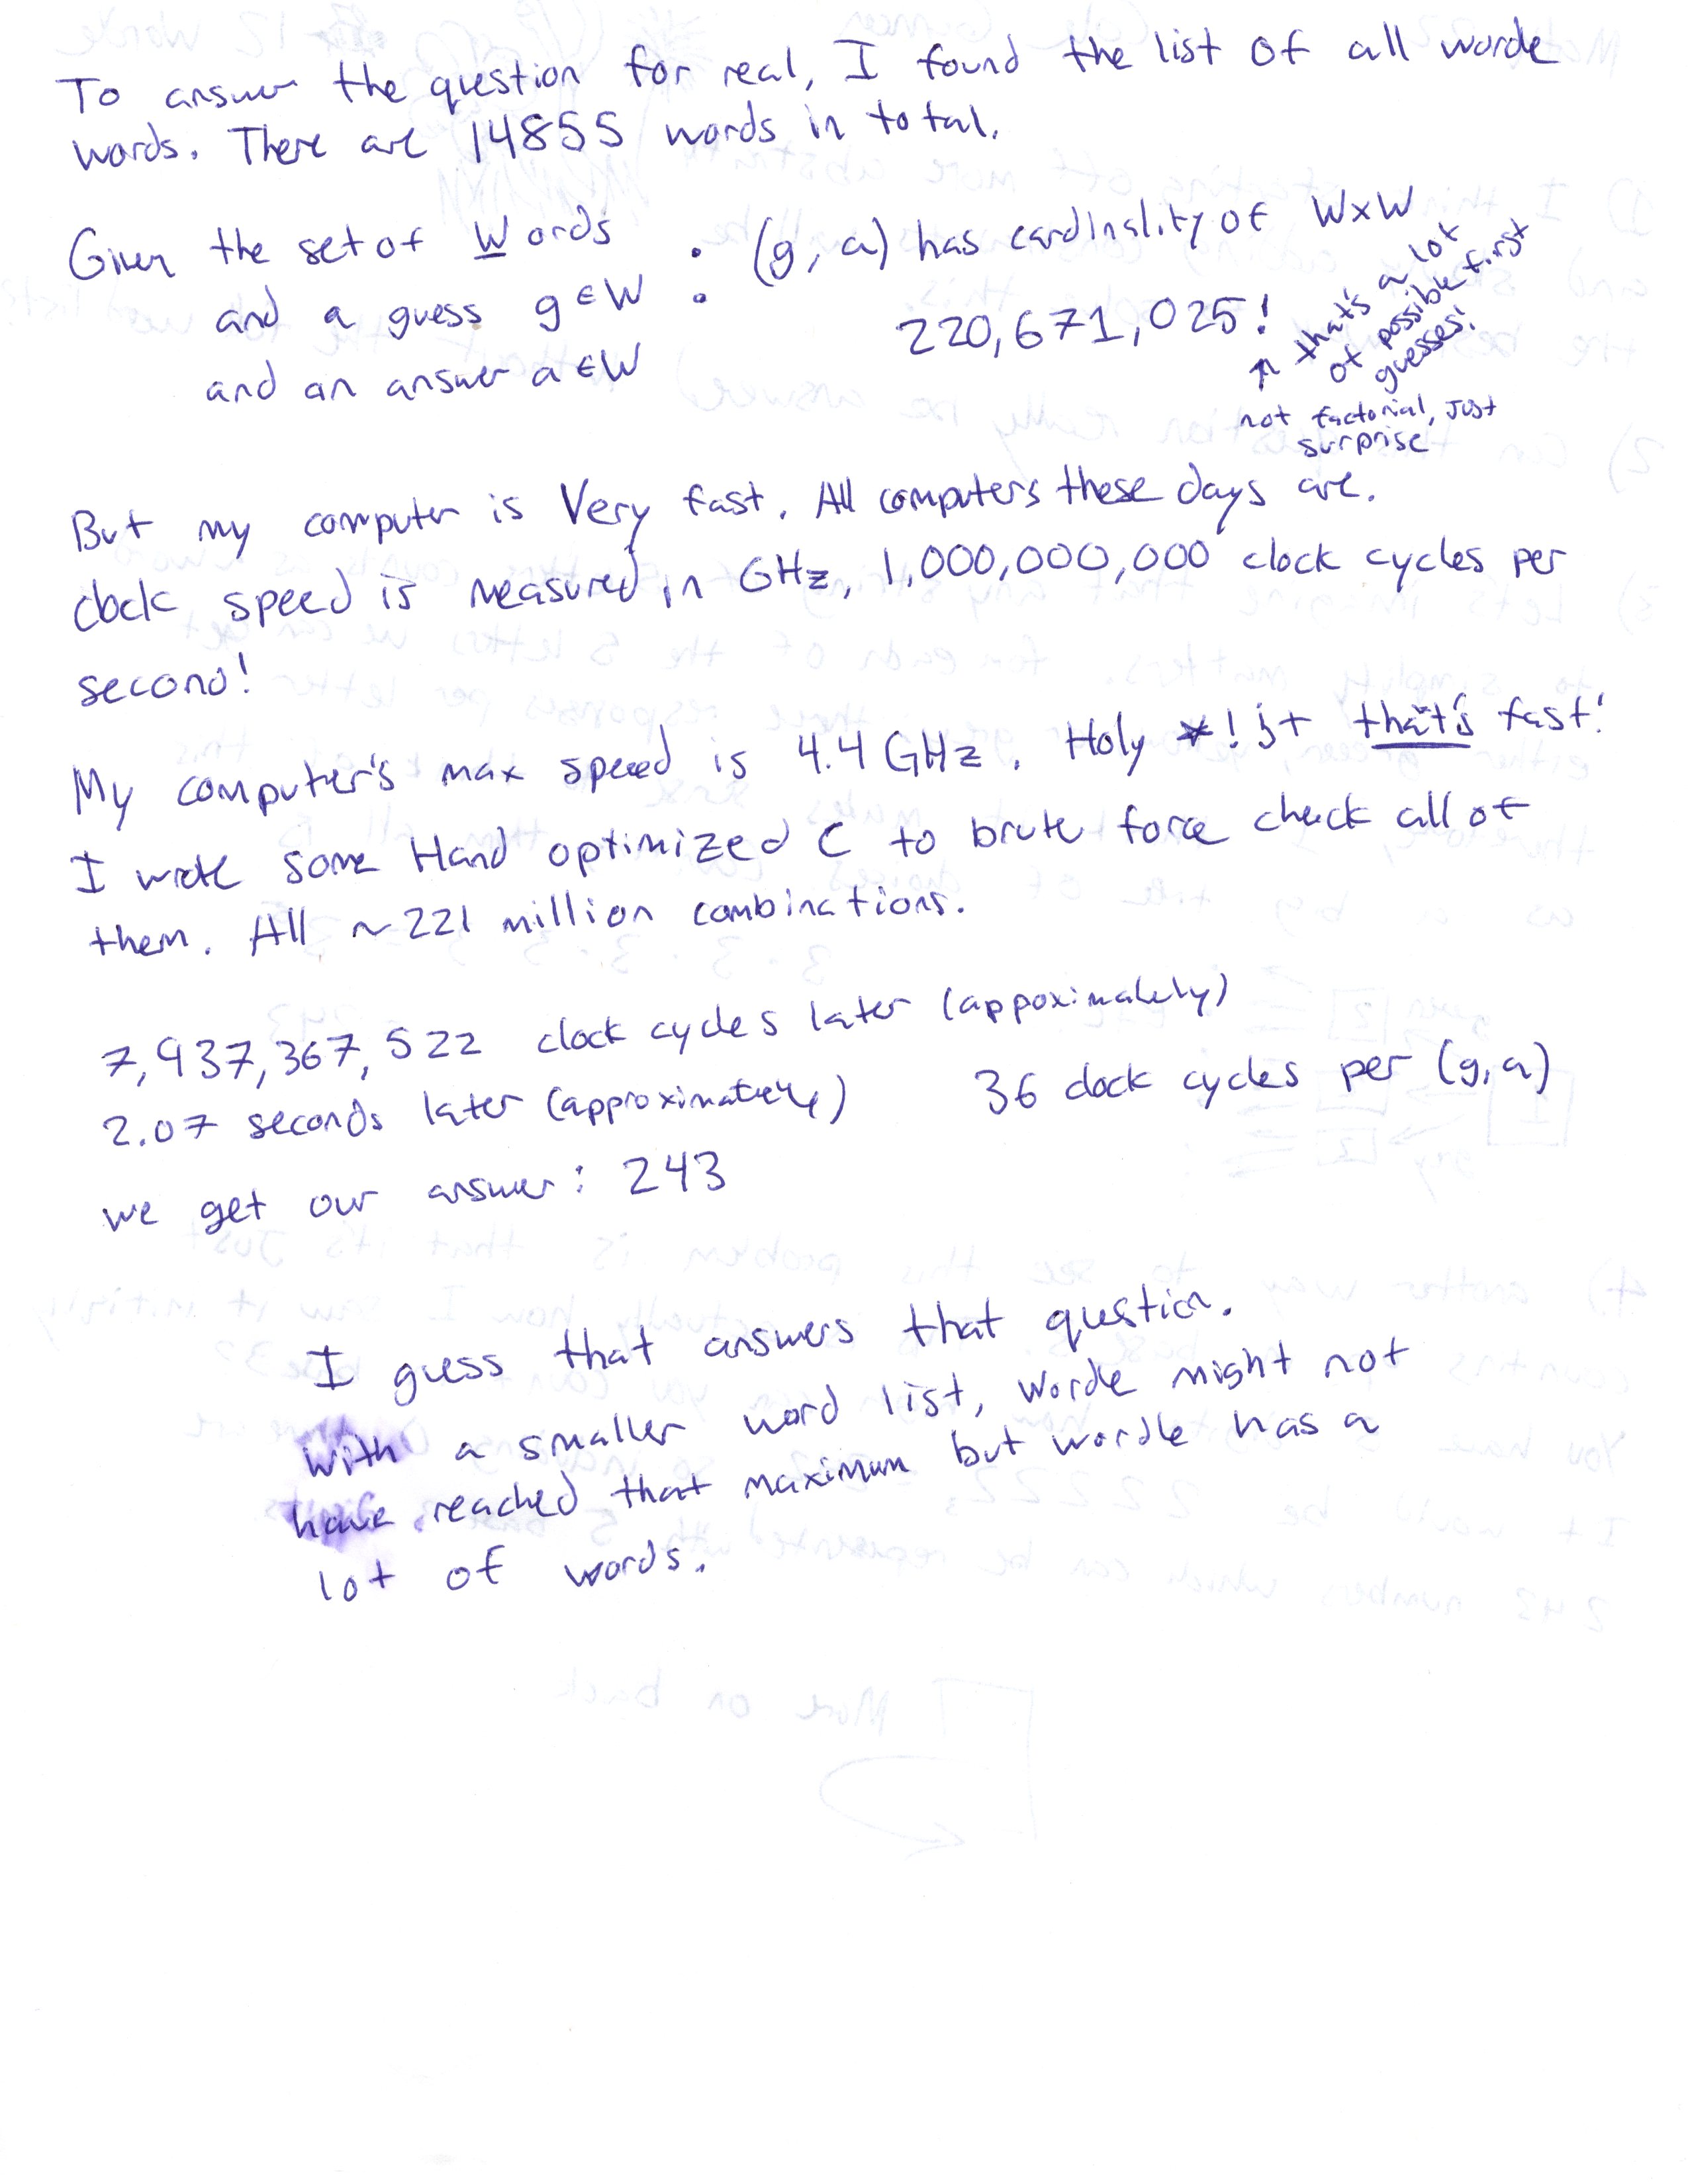 To answer the question for real, I found the list of all worde
words. There are 14855 words in total.
Given the set of Words
and a guess g ∈ W
and an answer a ∈ W
: (g, a) has cardinality of W×W
220,671,025!
↑ that's a lot
of possible first
guesses!
not factorial, just
surprise
But my computer is Very fast. All computers these days are.
clock speed is measured in GHz, 1,000,000,000 clock cycles per
second!
My computer's max speed is 4.4 GHz. Holy *!jt that's fast!
I wrote some Hand optimized C to brute force check all of
them. All ~221 million combinations.
7,937,367,522 clock cycles later (appoximately)
2.07 seconds later (approximately) 36 clock cycles per (g,a)
we get our answer: 243
I guess that answers that question.
With a smaller word list, Wordle might not
have reached that maximum but wordle has a
lot of words.